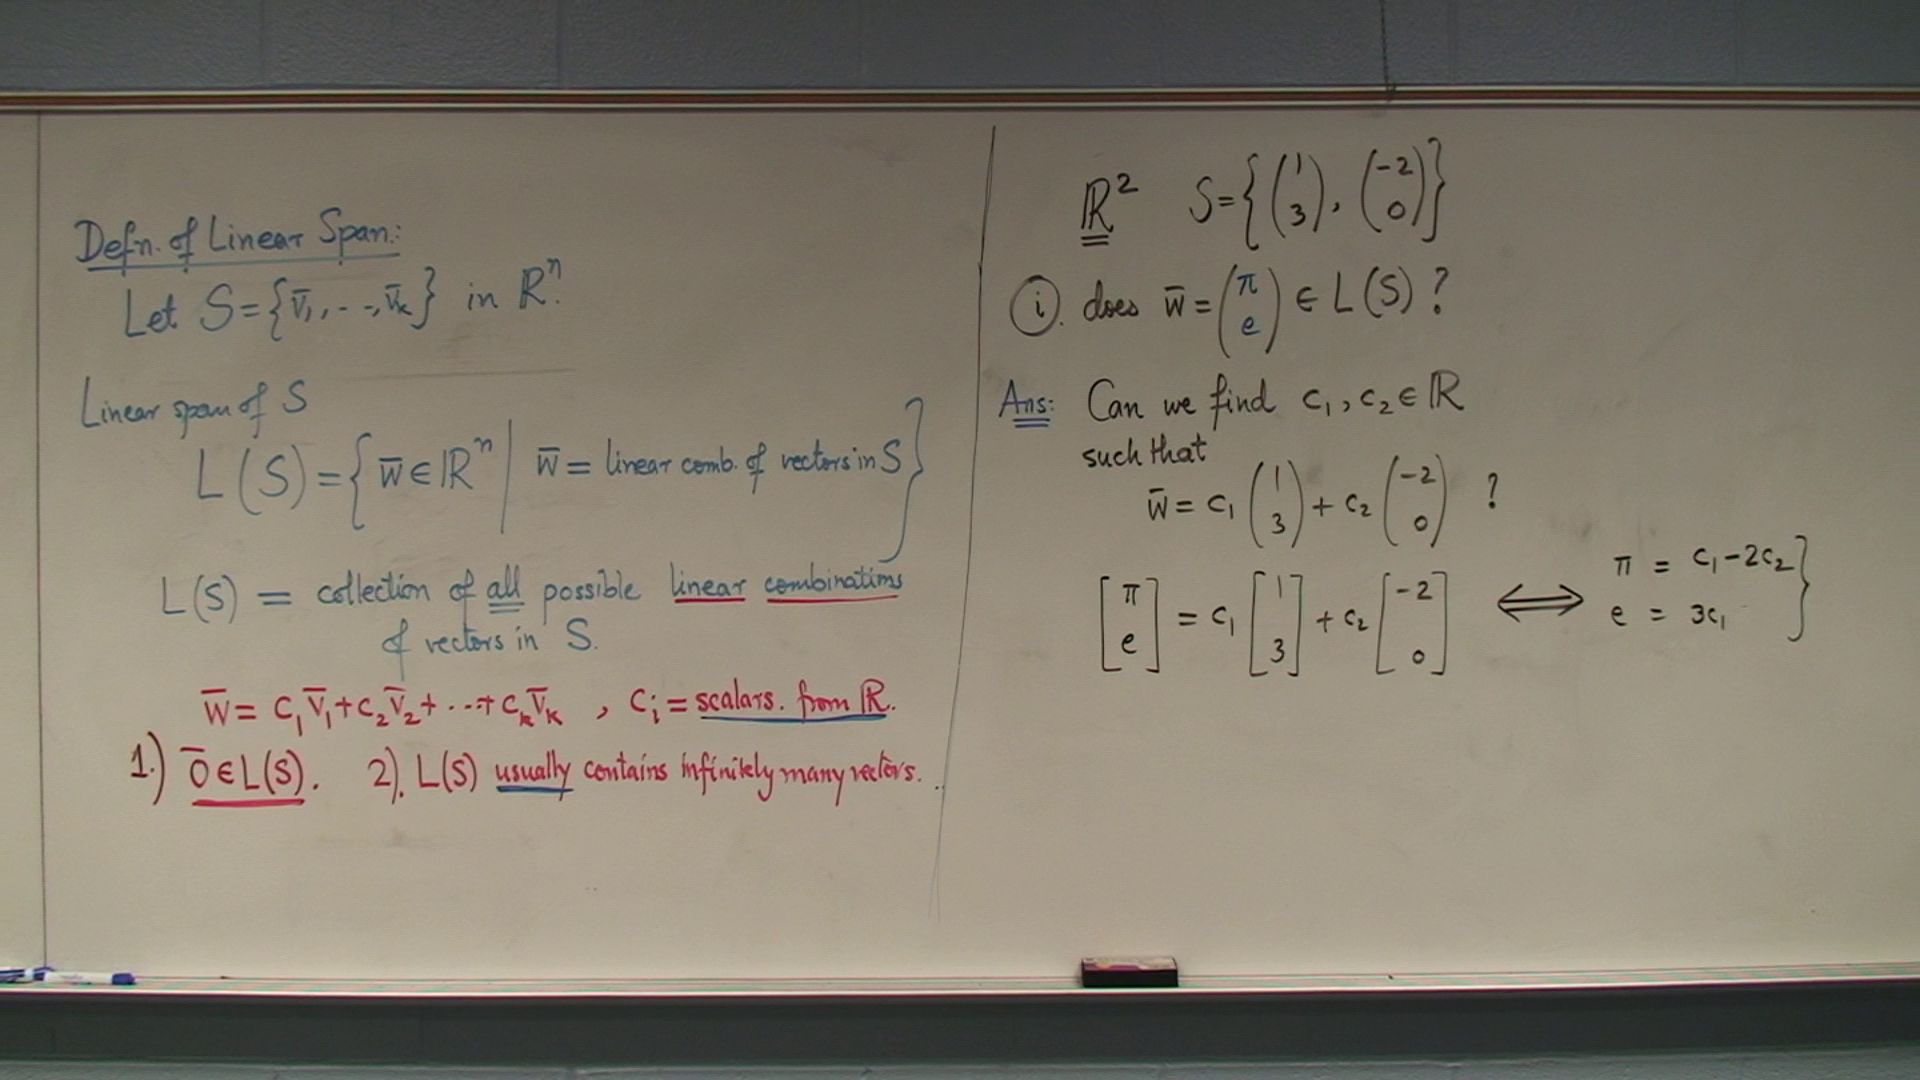 Defn. of Linear Span:
Let S = {v̄₁, . . , v̄ₖ} in ℝⁿ.
Linear span of S
L(S) = { w̄ ∈ ℝⁿ | w̄ = linear comb. of vectors in S }
L(S) = collection of all possible linear combinations
of vectors in S.
w̄ = c₁v̄₁ + c₂v̄₂ + ... + cₖv̄ₖ , cᵢ = scalars. from ℝ.
1.) 0̄ ∈ L(S). 2). L(S) usually contains infinitely many vectors.
ℝ² S = { (1 3), (-2 0) }
(i). does w̄ = (π e) ∈ L(S) ?
Ans: Can we find c₁, c₂ ∈ ℝ
such that
w̄ = c₁ (1 3) + c₂ (-2 0) ?
[π e] = c₁ [1 3] + c₂ [-2 0] ⟺ π = c₁ - 2c₂ }
e = 3c₁